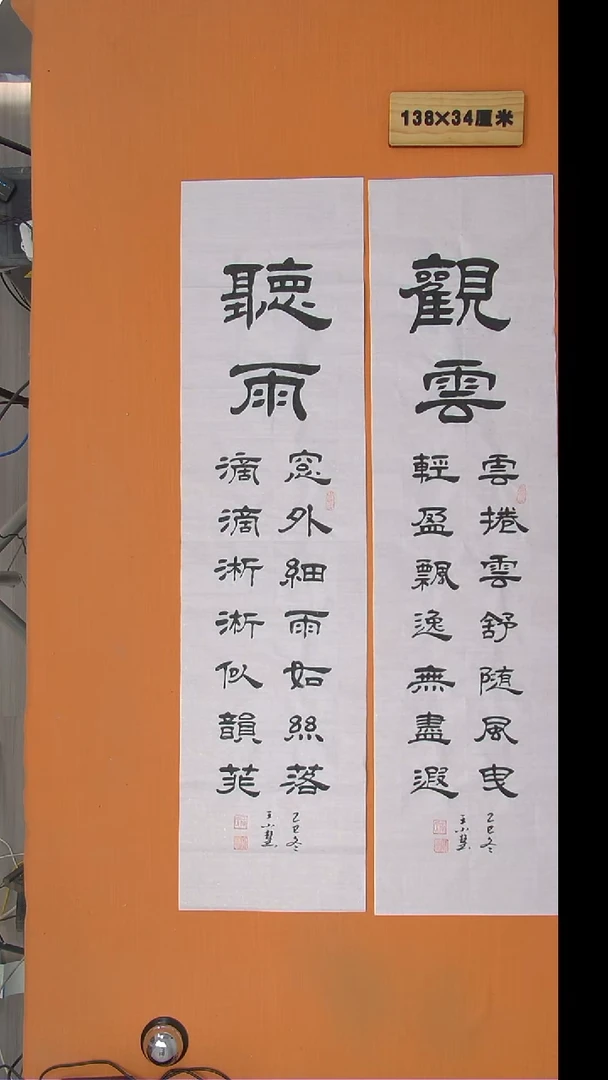 138×34厘米
觀雲
雲捲雲舒随風曳
輕盈飄逸無盡遐
乙巳冬
王小慧
聽雨
窓外細雨如絲落
滴滴淅淅似韻菲
乙巳冬
王小慧